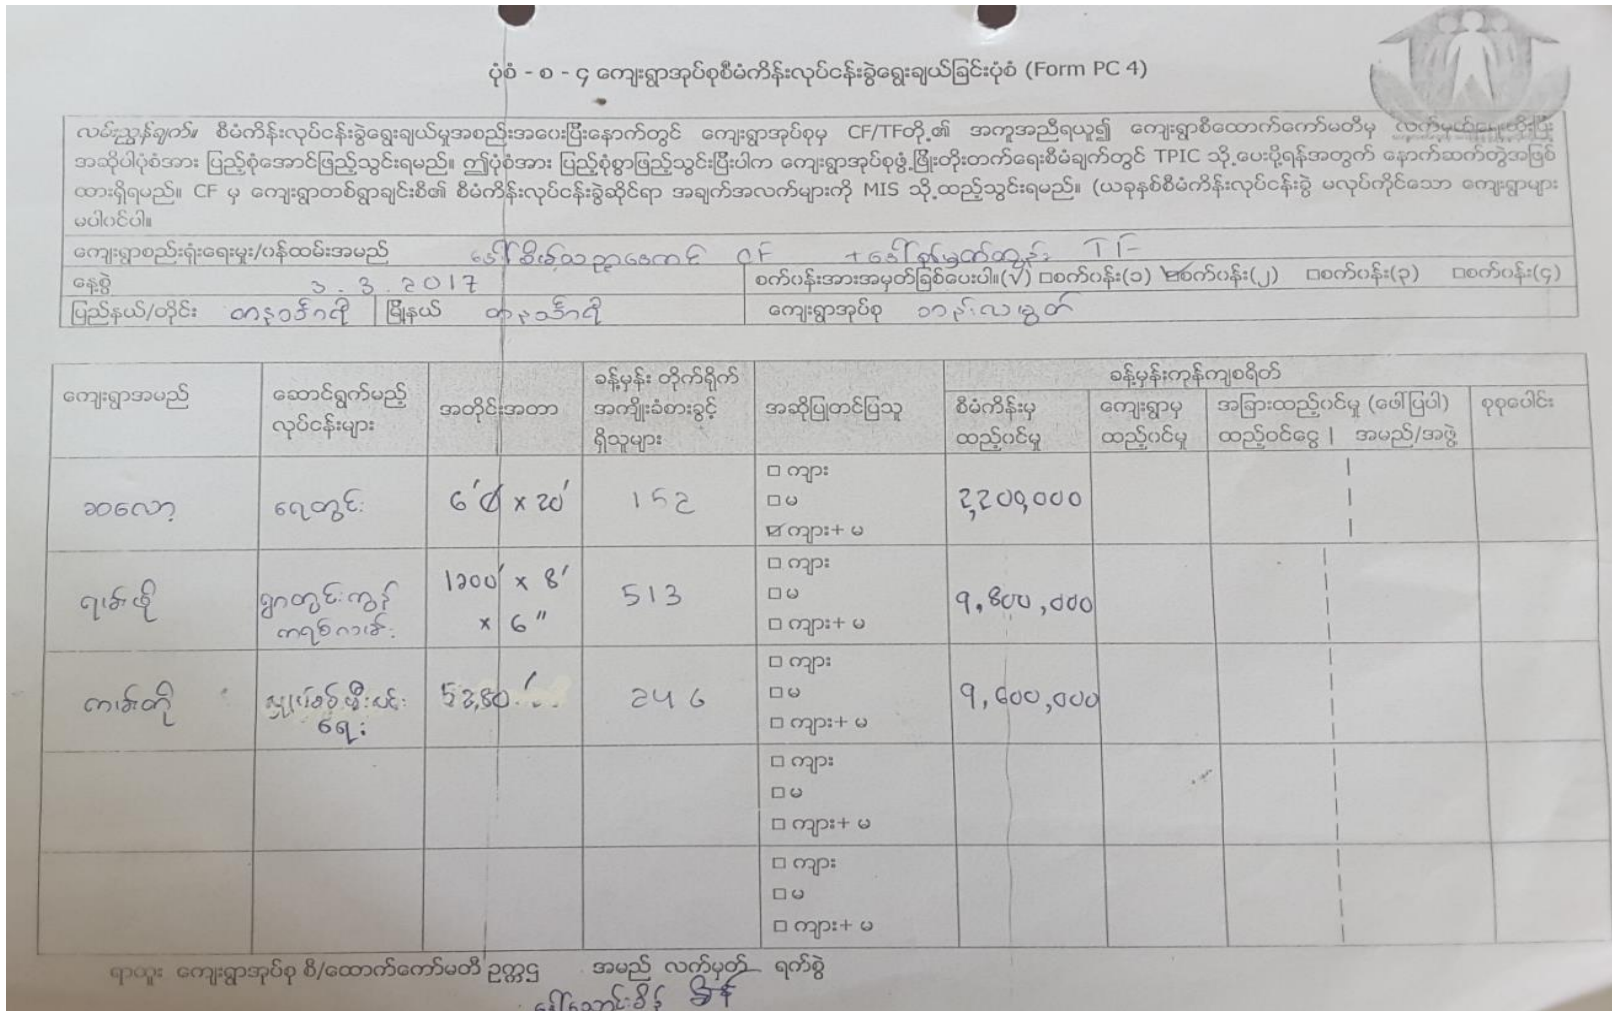 ပုံစံ - စ - ၄ ကျေးရွာအုပ်စုစီမံကိန်းလုပ်ငန်းခွဲရွေးချယ်ခြင်းပုံစံ (Form PC 4)
လမ်းညွှန်ချက်။ စီမံကိန်းလုပ်ငန်းခွဲရွေးချယ်မှုအစည်းအဝေးပြီးနောက်တွင် ကျေးရွာအုပ်စုမှ CF/TFတို့၏ အကူအညီရယူ၍ ကျေးရွာစီထောက်ကော်မတီမှ
အဆိုပါပုံစံအား ပြည့်စုံအောင်ဖြည့်သွင်းရမည်။ ဤပုံစံအား ပြည့်စုံစွာဖြည့်သွင်းပြီးပါက ကျေးရွာအုပ်စုဖွံ့ဖြိုးတိုးတက်ရေးစီမံချက်တွင် TPIC သို့ပေးပို့ရန်အတွက် နောက်ဆက်တွဲအဖြစ်
ထားရှိရမည်။ CF မှ ကျေးရွာတစ်ရွာချင်းစီ၏ စီမံကိန်းလုပ်ငန်းခွဲဆိုင်ရာ အချက်အလက်များကို MIS သို့ထည့်သွင်းရမည်။ (ယခုနှစ်စီမံကိန်းလုပ်ငန်းခွဲ မလုပ်ကိုင်သော ကျေးရွာများ
မပါဝင်ပါ။
ကျေးရွာစည်းရုံးရေးမှူး/ဝန်ထမ်းအမည် CF + TF
နေ့စွဲ 3.3.2017 စက်ဝန်းအားအမှတ်ခြစ်ပေးပါ။(√) □စက်ဝန်း(၁) ☑စက်ဝန်း(၂) □စက်ဝန်း(၃) □စက်ဝန်း(၄)
ပြည်နယ်/တိုင်း တနင်္သာရီ မြို့နယ် တနင်္သာရီ ကျေးရွာအုပ်စု
ကျေးရွာအမည် ဆောင်ရွက်မည့် လုပ်ငန်းများ အတိုင်းအတာ ခန့်မှန်း တိုက်ရိုက် အကျိုးခံစားခွင့် ရှိသူများ အဆိုပြုတင်ပြသူ ခန့်မှန်းကုန်ကျစရိတ်
စီမံကိန်းမှ ထည့်ဝင်မှု ကျေးရွာမှ ထည့်ဝင်မှု အခြားထည့်ဝင်မှု (ဖော်ပြပါ) ထည့်ဝင်ငွေ | အမည်/အဖွဲ့ စုစုပေါင်း
□ ကျား
ဆလော့ ရေတွင်း x 20' 152 □ မ 2,200,000
☑ ကျား+ မ
□ ကျား
1200' x 8' 513 □ မ 9,800,000
x 6" □ ကျား+ မ
□ ကျား
246 □ မ 9,600,000
□ ကျား+ မ
□ ကျား
□ မ
□ ကျား+ မ
□ ကျား
□ မ
□ ကျား+ မ
ရာထူး ကျေးရွာအုပ်စု စီ/ထောက်ကော်မတီ ဥက္ကဋ္ဌ အမည် လက်မှတ် ရက်စွဲ